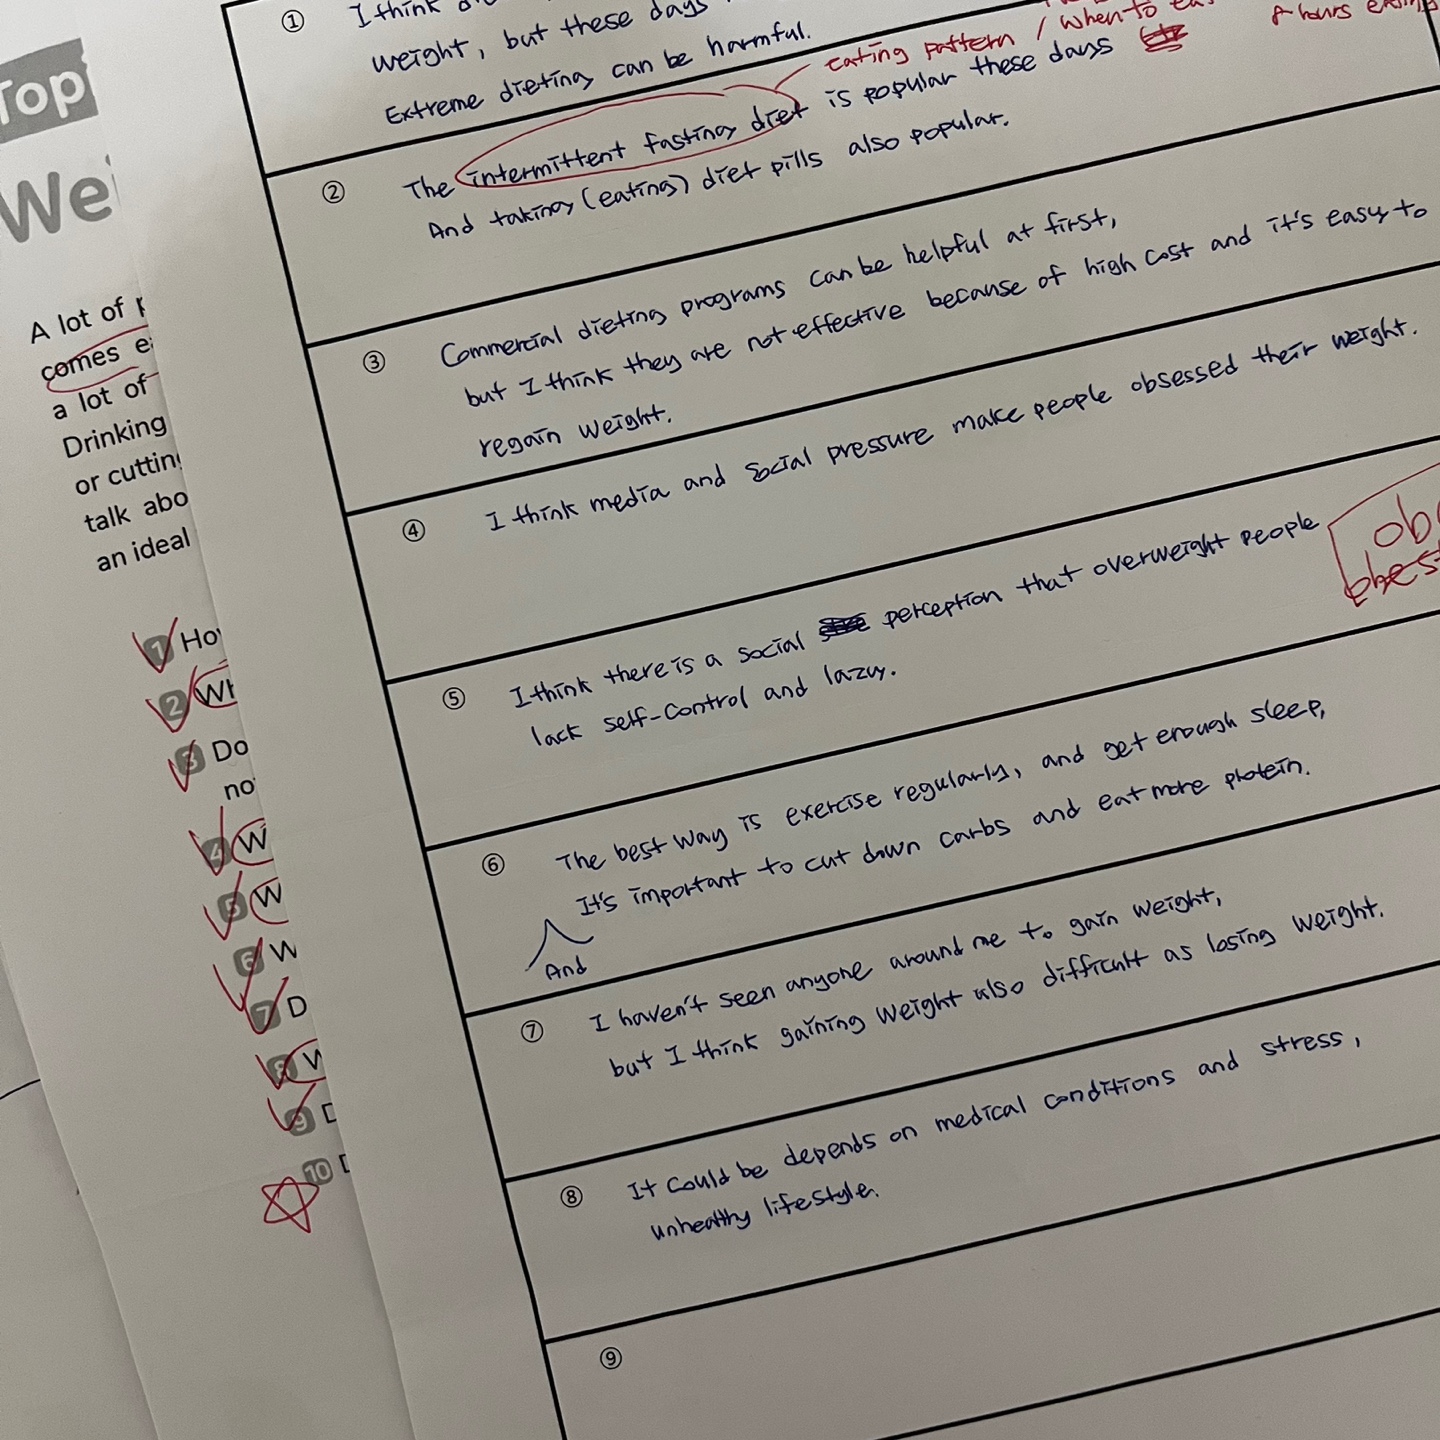 Top
We
A lot of
comes
a lot of
Drinking
or cutting
talk abo
an ideal
1 Ho
2 Wh
3 Do
no
4 W
5 W
6 W
7 D
8 W
9 D
10 D
① I think
weight, but these days
Extreme dieting can be harmful.
eating pattern / when to
8 hours eating
② The intermittent fasting diet is popular these days
And taking (eating) diet pills also popular.
③ Commercial dieting programs can be helpful at first,
but I think they are not effective because of high cost and it's easy to
regain weight.
④ I think media and social pressure make people obsessed their weight.
⑤ I think there is a social perception that overweight people
lack self-control and lazy.
ob
⑥ The best way is exercise regularly, and get enough sleep,
It's important to cut down carbs and eat more protein.
And
⑦ I haven't seen anyone around me to gain weight,
but I think gaining weight also difficult as losing weight.
⑧ It could be depends on medical conditions and stress,
unhealthy lifestyle.
⑨